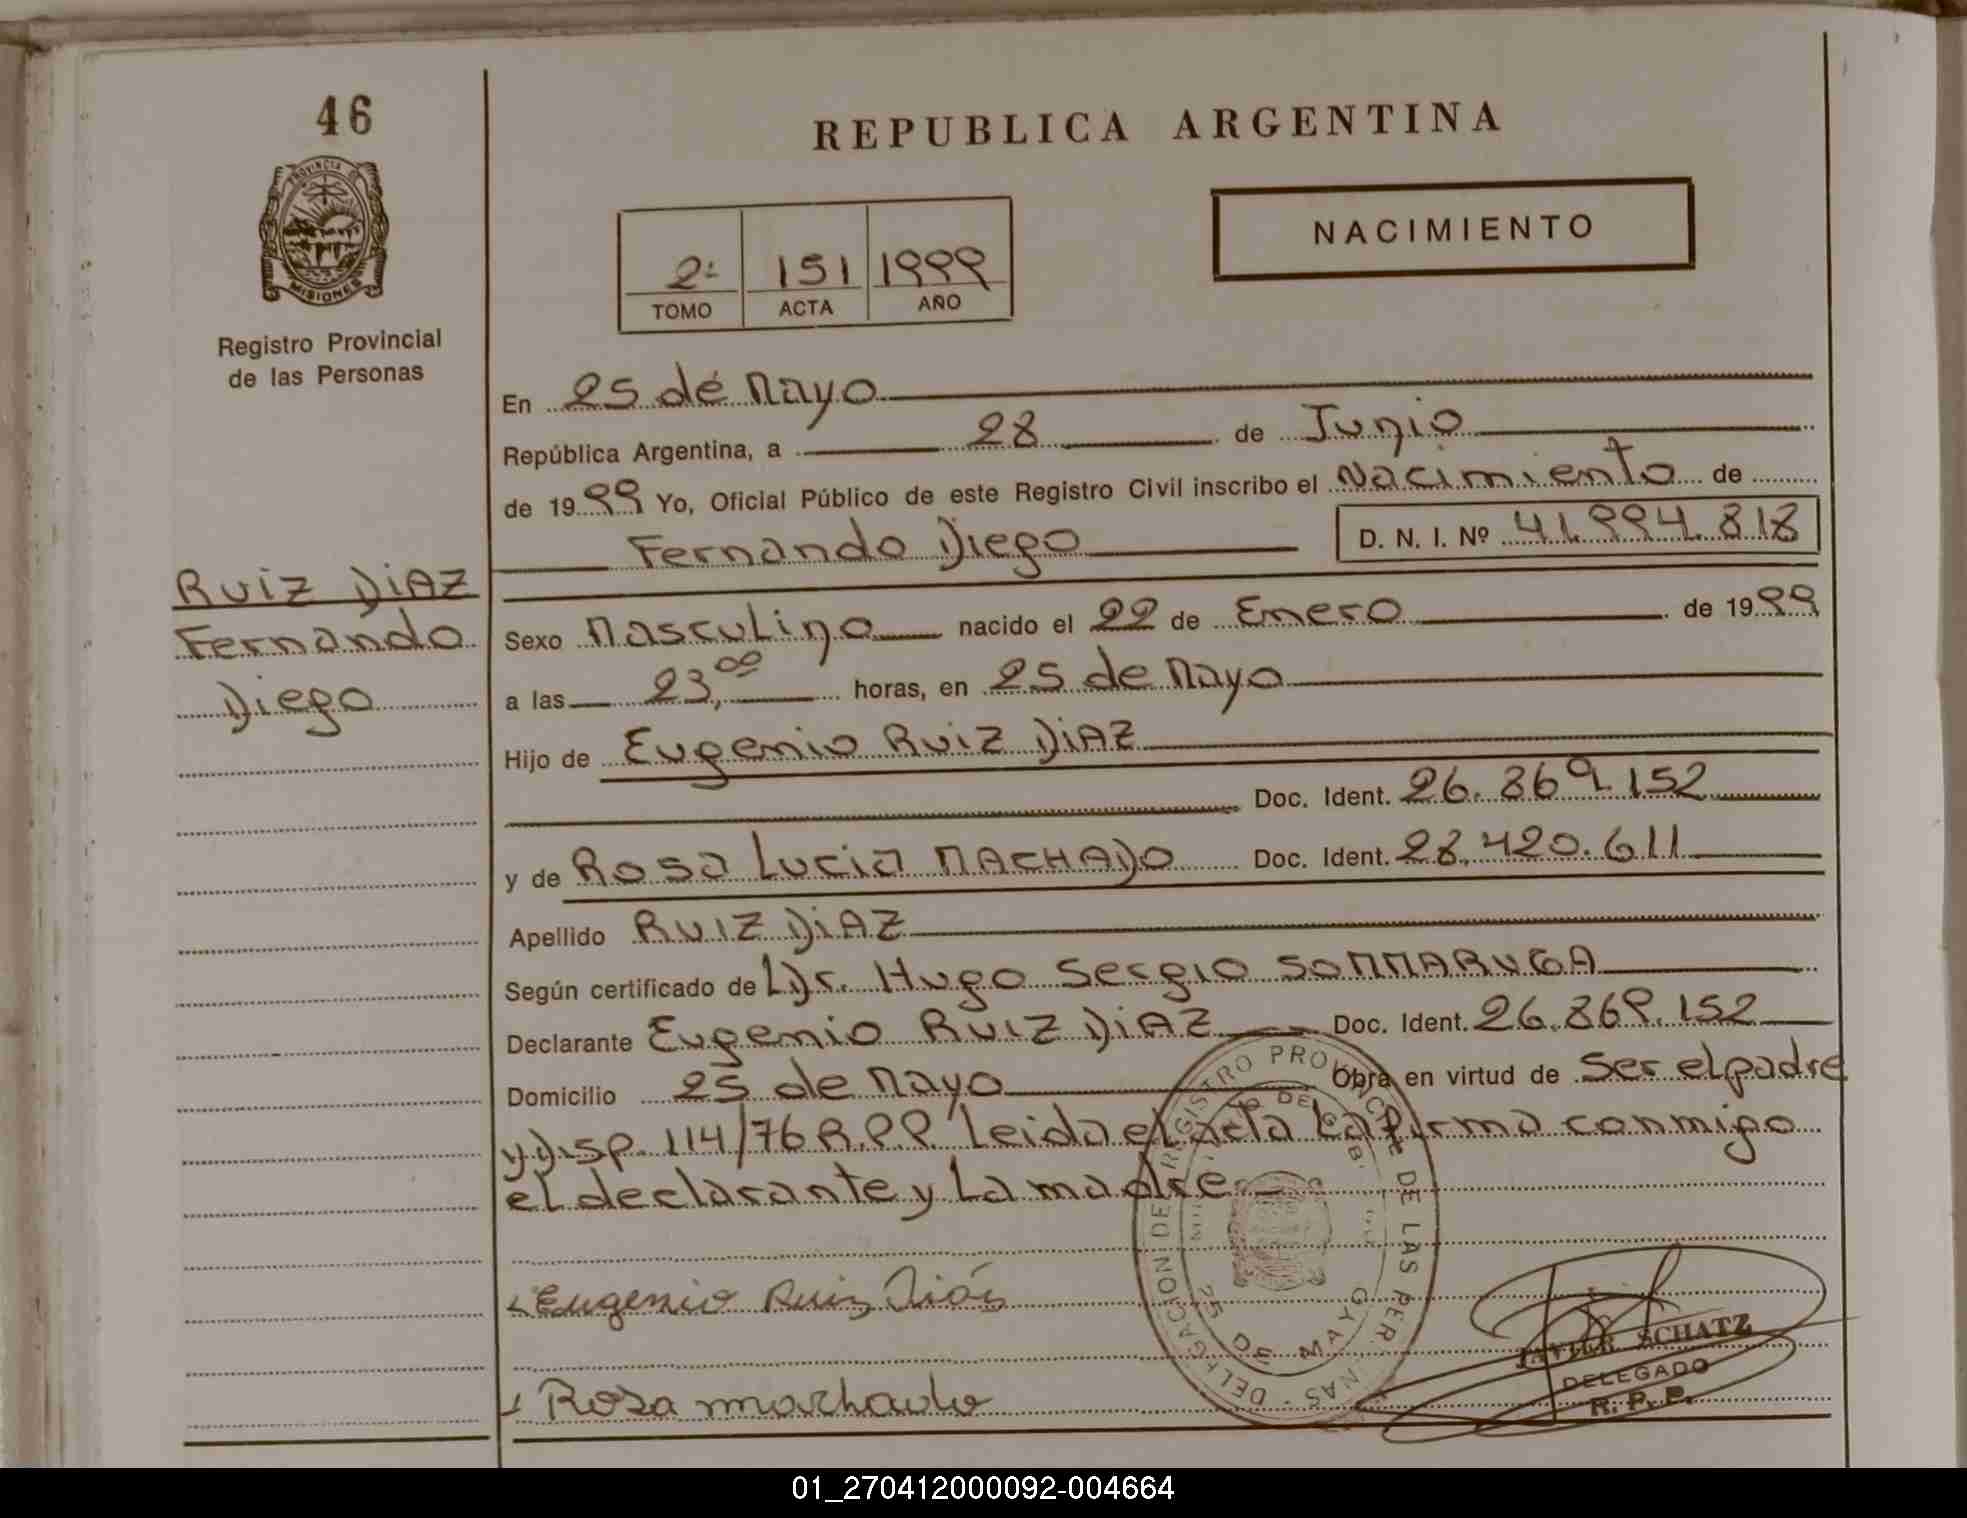 46
PROVINCIA DE
MISIONES
Registro Provincial
de las Personas
RUIZ DIAZ
Fernando
Diego
REPUBLICA ARGENTINA
NACIMIENTO
2º 151 1999
TOMO ACTA AÑO
En 25 de Mayo
República Argentina, a 28 de Junio
de 1999 Yo, Oficial Público de este Registro Civil inscribo el Nacimiento de
Fernando Diego D. N. I. Nº 41.994.818
Sexo Masculino nacido el 22 de Enero de 1999
a las 23,00 horas, en 25 de Mayo
Hijo de Eugenio RUIZ DIAZ
Doc. Ident. 26.869.152
y de Rosa Lucia MACHADO Doc. Ident. 28.420.611
Apellido RUIZ DIAZ
Según certificado de Dr. Hugo Sergio SOMMARUGA
Declarante Eugenio RUIZ DIAZ Doc. Ident. 26.869.152
Domicilio 25 de Mayo Obra en virtud de ser el padre
y Disp. 114/76 R.P.P. Leida el acta la firma conmigo
el declarante y la madre
DELEGACION DE REGISTRO PROVINCIAL DE LAS PERSONAS
25 DE MAYO
Eugenio Ruiz Diás
Rosa machado
JAVIER SCHATZ
DELEGADO
R. P. P.
01_270412000092-004664